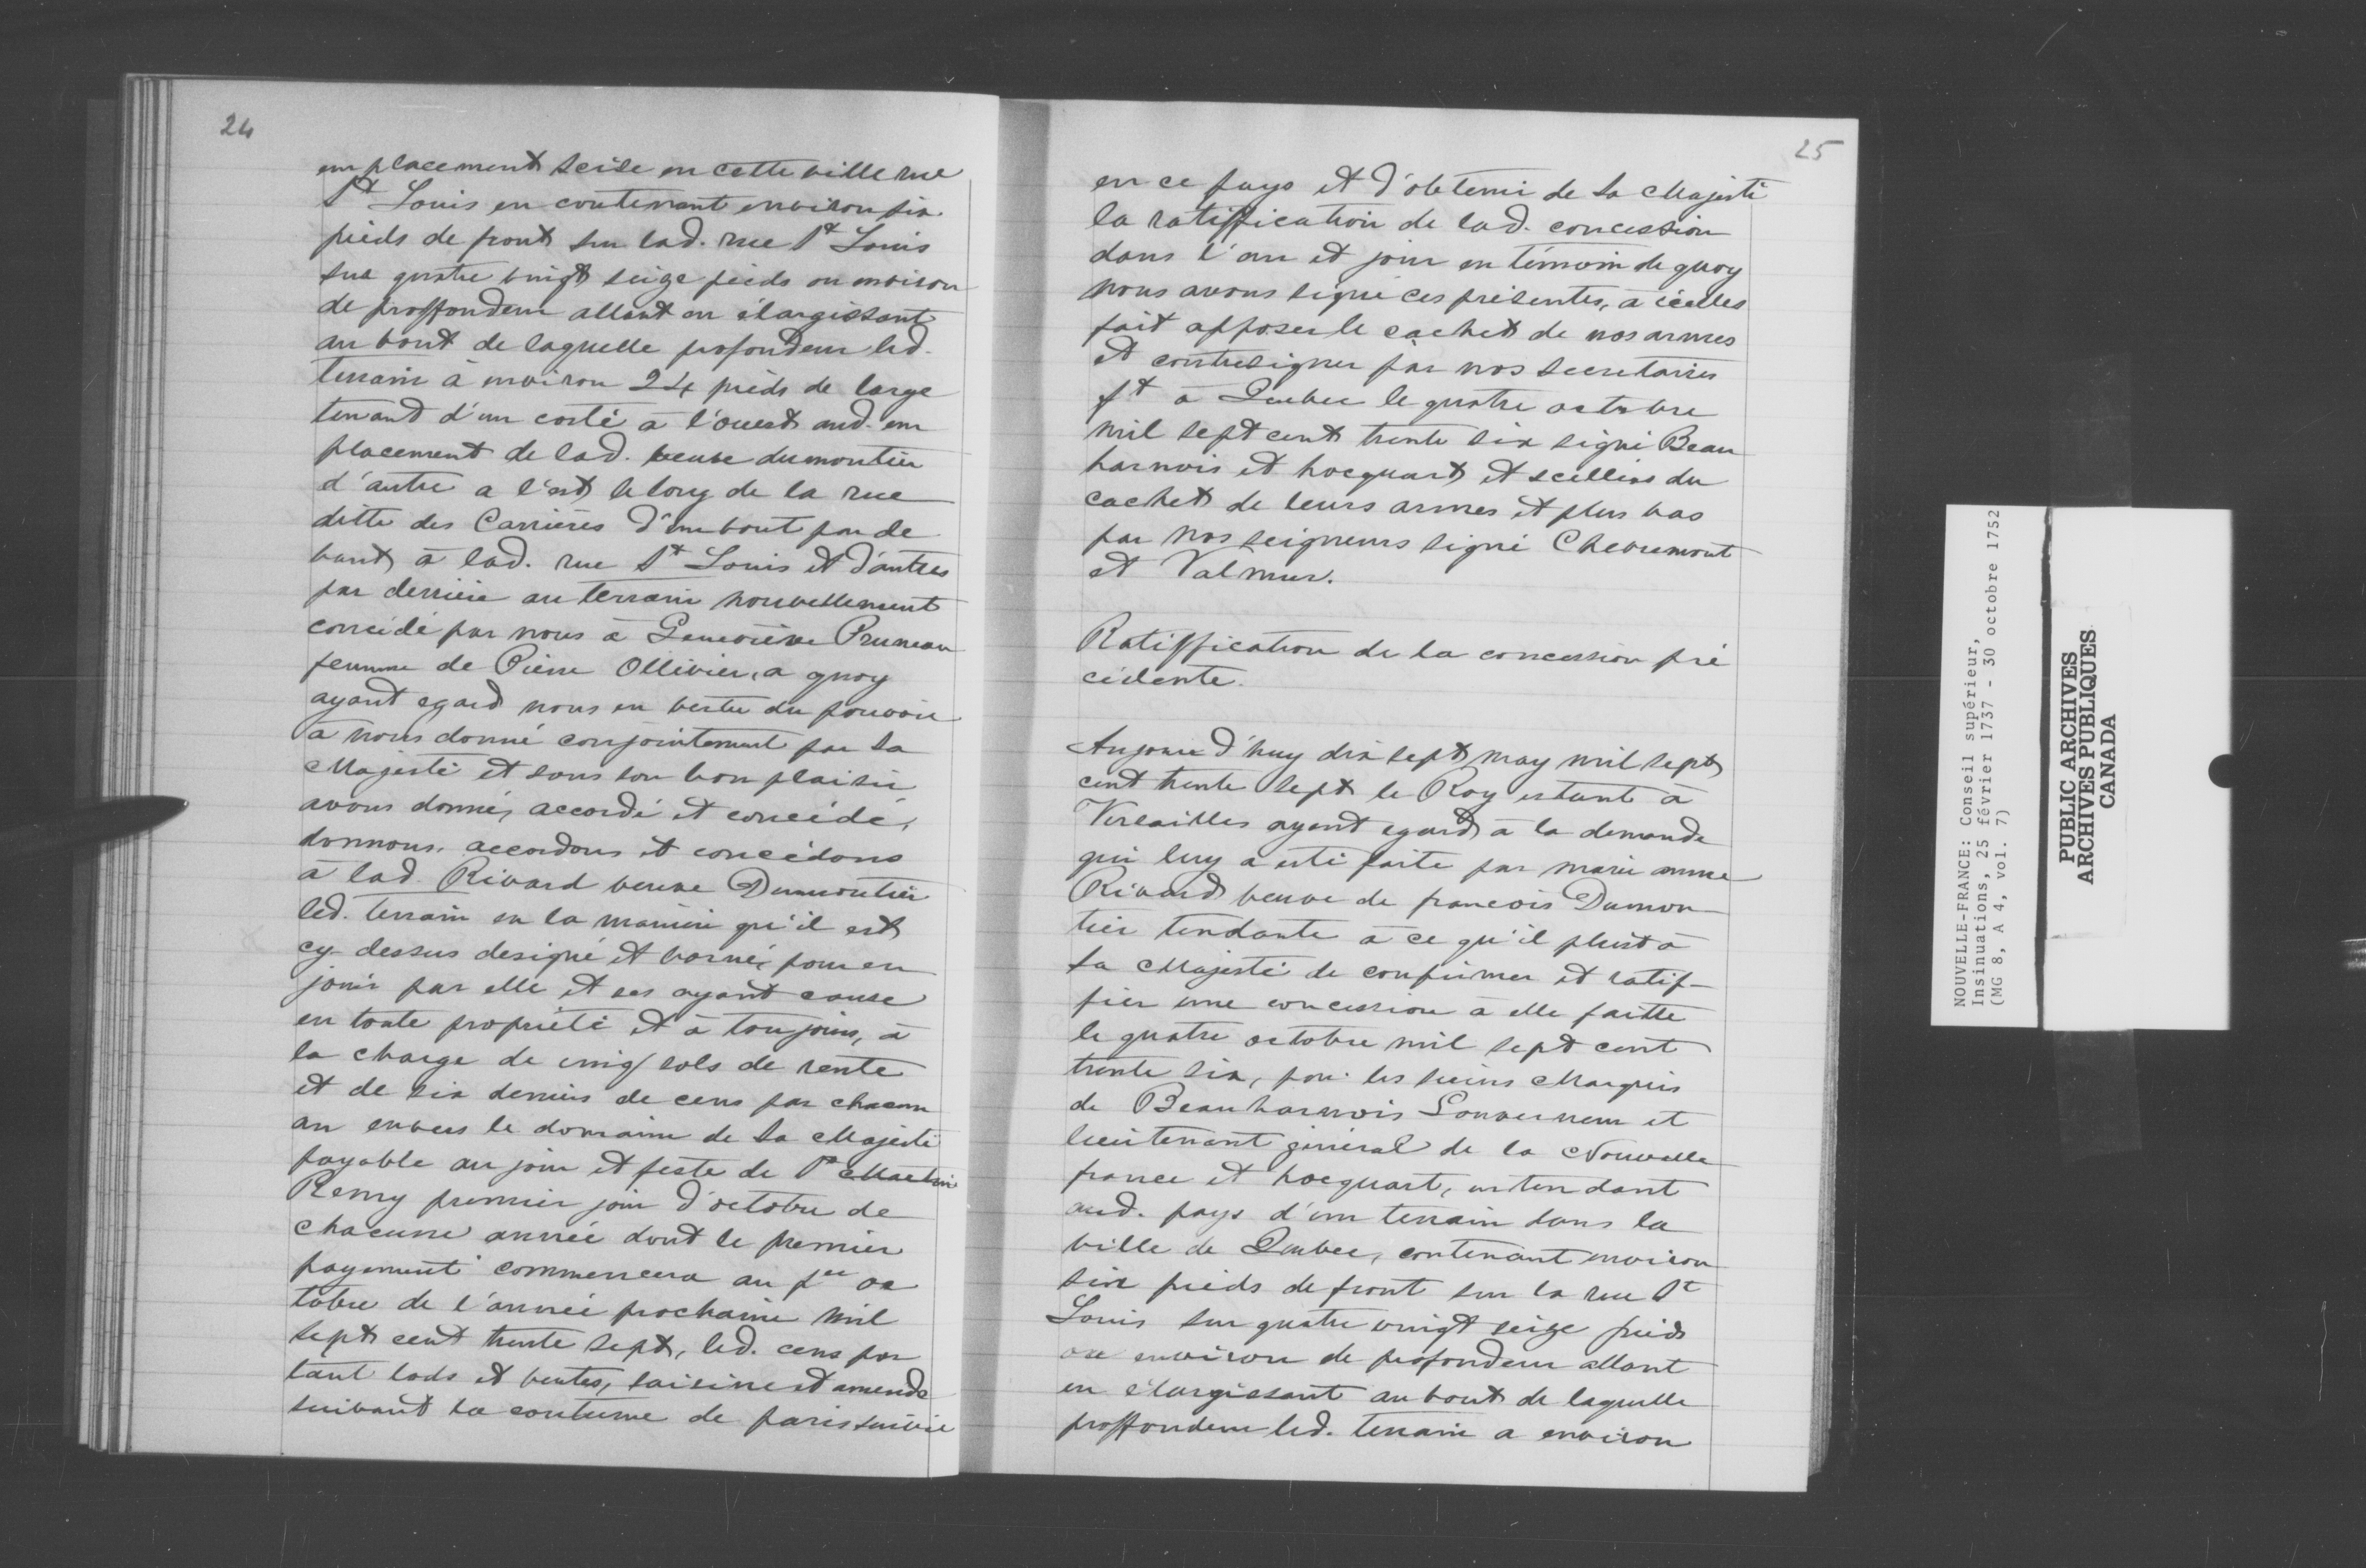 24
emplacement scise en cette ville rue
St Louis en contenant environ six
pieds de front sur lad. rue St Louis
sur quatre vingt seize pieds ou environ
de proffondeur allant en élargissant
au bout de laquelle profondeur led.
terrain à environ 24 pieds de large
tenant d'un costé a l'ouest aud. em
placement de lad. veuve dumontier
d'autre a l'est le long de la rue
ditte des Carrières d'un bout par de
vant à lad. rue St Louis et d'autres
par derrière au terrain nouvellement
concédé par nous à Geneviève Pruneau
femme de Pierre Ollivier, a quoy
ayant egard nous en vertu du pouvoir
a nous donné conjointement par Sa
Majesté et sous son bon plaisir
avons donné, accordé et concédé,
donnons, accordons et concédons
à lad. Rivard veuve Dumoutier
led. terrain en la manière qu'il est
cy dessus designé et borné, pour en
jouir par elle et ses ayant cause
en toute propriété et à toujours, à
la charge de cinq sols de rente
et de six deniers de cens par chacun
an envers le domaine de Sa Majesté
payable au jour et feste de St Martin
Remy premier jour d'octobre de
chacune année dont le premier
payement commencera au per oc
tobre de l'année prochaine mil
sept cent trente sept, led. cens por
tant lods et ventes, saisine et amende
suivant la coutume de paris suivie
25
en ce pays et d'obtenir de Sa Majesté
la ratiffication de lad. concession
dans l'an et jour en témoin de quoy
nous avons signé ces présentes, à icelles
fait apposer le cachet de nos armes
et contresigner par nos secretaires
ft à Quebec le quatre octobre
mil sept cent trente six signé Beau
harnois et hocquart et scellées du
cachet de leurs armes et plus bas
par Nosseigneurs signé Chevremont
et Valmur.
Ratiffication de la concession pré
cédente.
Aujour d'huy dix sept may mil sept
cent trente sept le Roy estant à
Versailles ayant egard à la demande
qui luy a esté faite par marie anne
Rivard veuve de francois Dumon
tier tendante à ce qu'il plust à
Sa Majesté de confirmer et ratif-
fier une concession à elle faitte
le quatre octobre mil sept cent
trente six, par les sieurs Marquis
de Beauharnois Gouverneur et
lieutenant général de la Nouvelle
france et hocquart, intendant
aud. pays d'un terrain dans la
ville de Quebec, contenant environ
six pieds de front sur la rue St
Louis sur quatre vingt seize pieds
ou environ de profondeur allant
en élargissant au bout de laquelle
proffondeur led. terrain a environ
NOUVELLE-FRANCE: Conseil supérieur,
Insinuations, 25 février 1737 - 30 octobre 1752
(MG 8, A 4, vol. 7)
PUBLIC ARCHIVES
ARCHIVES PUBLIQUES
CANADA